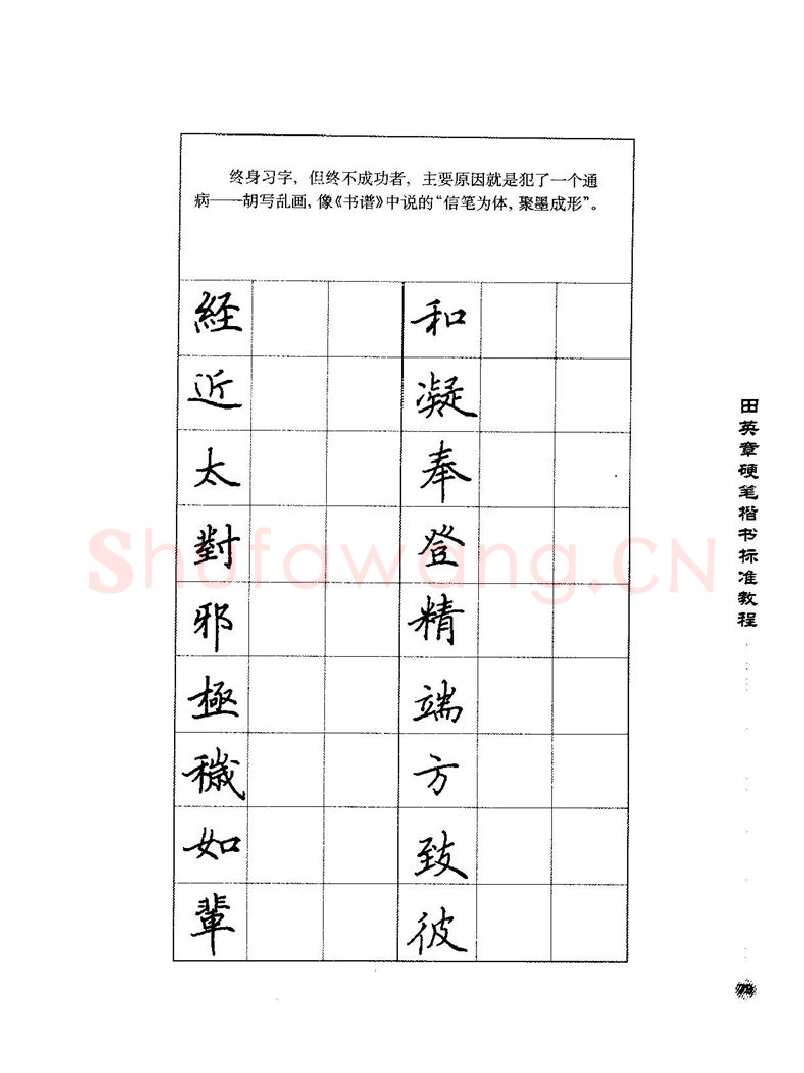 终身习字，但终不成功者，主要原因就是犯了一个通
病——胡写乱画，像《书谱》中说的“信笔为体，聚墨成形”。
經 和
近 凝
太 奉
對 登
邪 精
極 端
穢 方
如 致
輩 彼
田英章硬笔楷书标准教程
Shufawang.CN